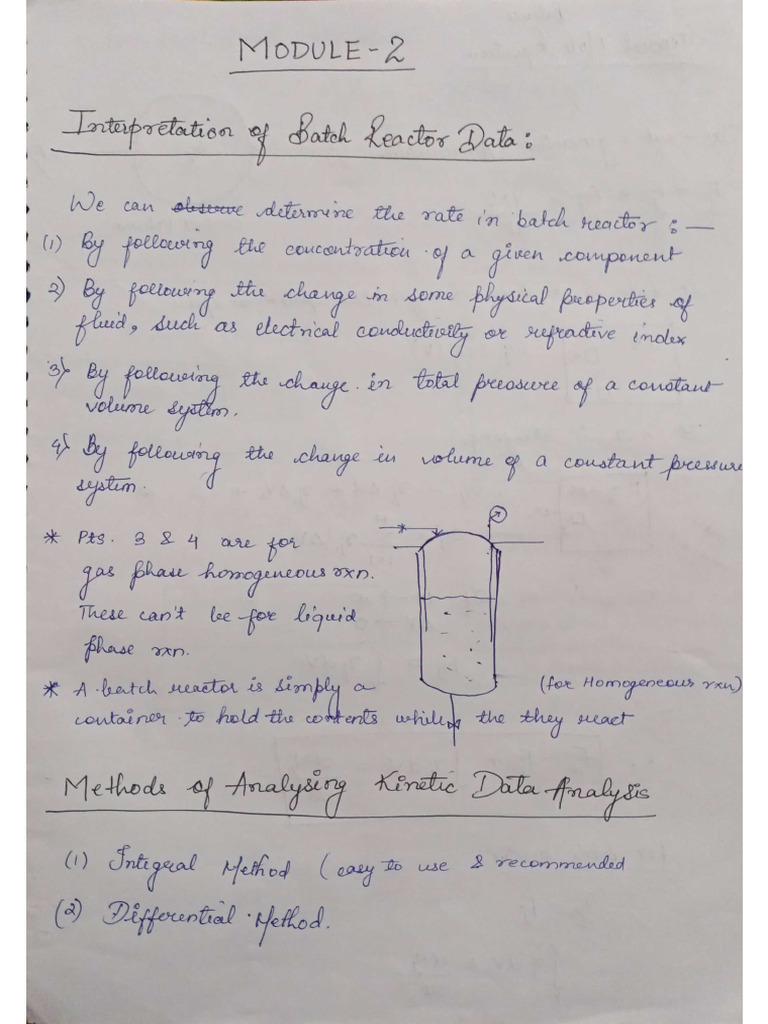 MODULE-2
Interpretation of Batch Reactor Data:
We can observe determine the rate in batch reactor :—
(1) By following the concentration of a given component
2) By following the change in some physical properties of
fluid, such as electrical conductivity or refractive index
3) By following the change in total pressure of a constant
volume system.
4) By following the change in volume of a constant pressure
system.
* Pts. 3 & 4 are for
gas phase homogeneous rxn.
These can't be for liquid
phase rxn.
* A batch reactor is simply a
(for Homogeneous rxn)
container to hold the contents while the they react
Methods of Analysing Kinetic Data Analysis
(1) Integral Method ( easy to use & recommended
(2) Differential Method.